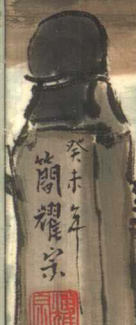 癸未年
簡耀宗